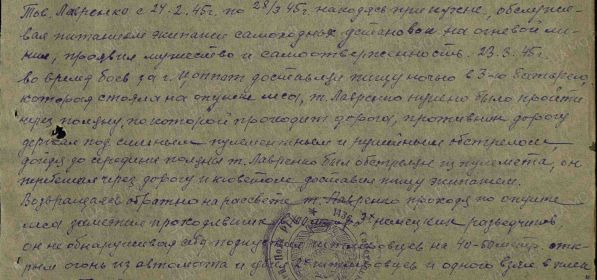 Тов. Лавренко с 24.2.45г. по 28/3.45г. находясь при кухне, обслужи-
вая питанием экипажи самоходных установок на огневой ли-
нии, проявил мужество и самоотверженность. 23.3.45г.
во время боев за г. Цоппот доставляя пищу ночью в 3-ю батарею,
которая стояла на опушке леса, т. Лавренко нужно было пройти
через поляну, по которой проходит дорога, противник дорогу
держал под сильным пулеметным и ружейным обстрелом
дойдя до середины поляны т. Лавренко был обстрелян из пулемета, он
через дорогу и кювето доставил пищу экипажам.
Возвращаясь обратно на рассвете т. Лавренко проходя по опушке
леса заметил проходивших 3х немецких разведчиков
он не обнаруживая себя подпустил гитлеровцев на 40-50 метр. отк-
рыл огонь из автомата и гитлеровцев и одного взял в плен